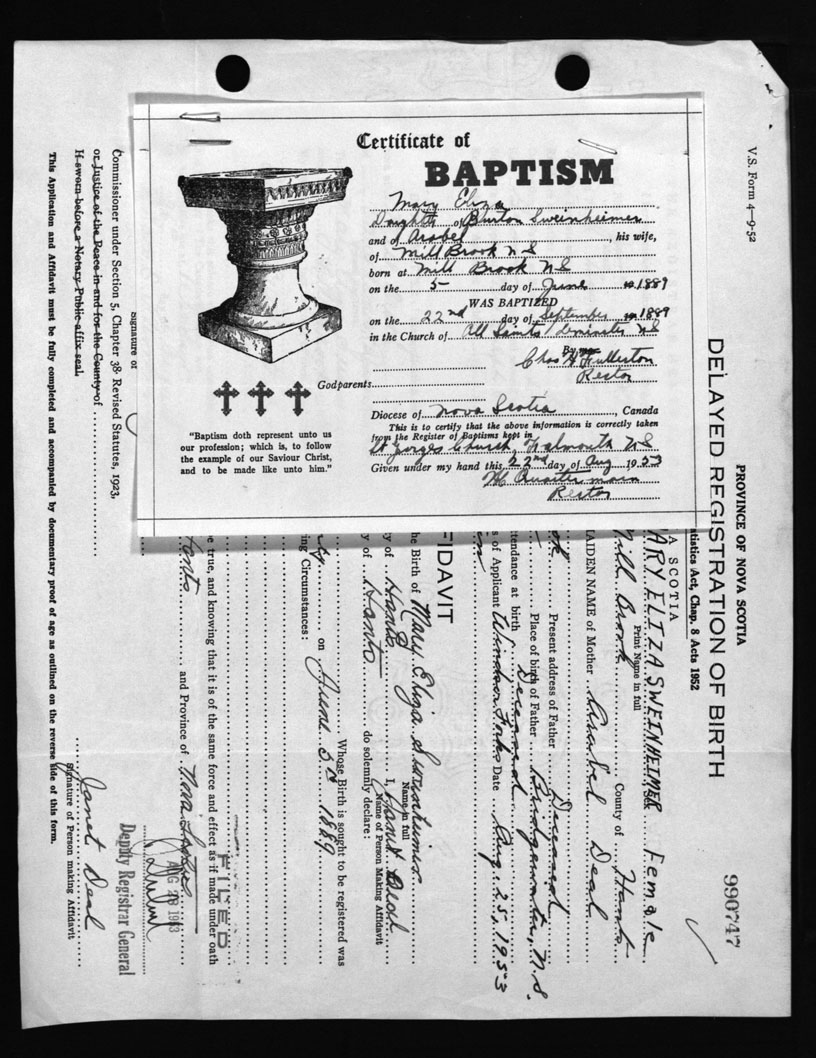 Certificate of
BAPTISM
Mary Eliza
Daughter of Burton Sweinheimer
and of Arabel, his wife,
of Mill Brook N S
born at Mill Brook N S
on the 5 day of June 1889
WAS BAPTIZED
on the 22nd day of September 1889
in the Church of All Saints N S
By me
Chas H Fullerton
Rector
Godparents
Diocese of Nova Scotia, Canada
This is to certify that the above information is correctly taken
from the Register of Baptisms kept in
St Georges Church, Falmouth N S
Given under my hand this 22nd day of Aug 1953
Quartermain
Rector
"Baptism doth represent unto us
our profession; which is, to follow
the example of our Saviour Christ,
and to be made like unto him."
V.S. Form 4—9-52
PROVINCE OF NOVA SCOTIA
DELAYED REGISTRATION OF BIRTH
990747
tistics Act, Chap. 8 Acts 1952
A SCOTIA
ARY ELIZA SWEINHEIMER Female
Print Name in full
Mill Brook County of Hants
AIDEN NAME of Mother Arabel Deal
ok Present address of Father Deceased
Place of birth of Father Bridgewater, N.S.
tendance at birth Deceased
s of Applicant Windsor Forks Date Aug. 25, 1953
FIDAVIT
he Birth of Mary Eliza Sweinheimer
Name in full
y of Hants I, Janet Deal
Name of Person Making Affidavit
y of Hants do solemnly declare:
Whose Birth is sought to be registered was
on June 5th 1889
ing Circumstances:
e true, and knowing that it is of the same force and effect as if made under oath
ants and Province of Nova Scotia
FILED
AUG 28 1953
Deputy Registrar General
Signature of
Janet Deal
Signature of Person making Affidavit
Commissioner under Section 5, Chapter 38 Revised Statutes, 1923,
or Justice of the Peace in and for the County of
If sworn before a Notary Public affix seal.
This Application and Affidavit must be fully completed and accompanied by documentary proof of age as outlined on the reverse side of this form.